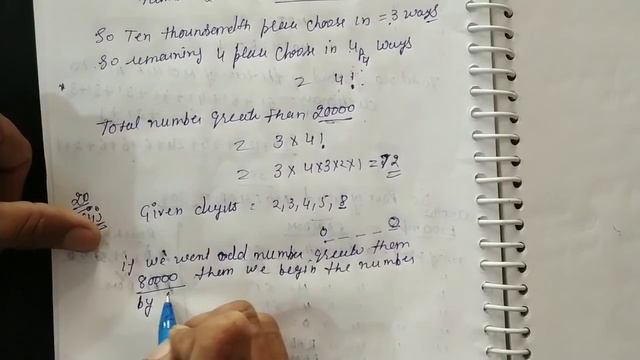 So Ten thousandth place choose in = 3 ways
So remaining 4 place choose in 4P4 ways
= 4!
Total number greater than 20000
= 3 × 4!
= 3 × 4×3×2×1 = 72
Given digits = 2, 3, 4, 5, 8
if we went odd number greater them
80000 them we begin the number
by